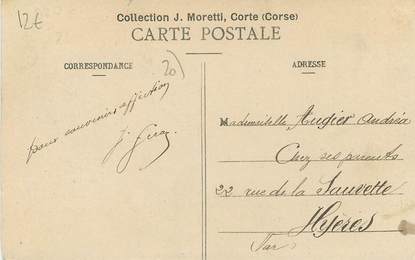 12€
Collection J. Moretti, Corte (Corse)
CARTE POSTALE
CORRESPONDANCE
20
pour souvenirs affection
J.
ADRESSE
Mademoiselle Augier Andréa
Chez ses parents
22 rue de la Sauvette
Hyères
Var